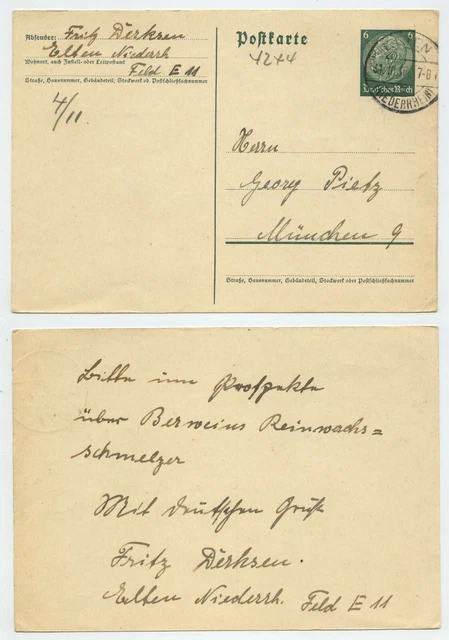 Absender: Fritz Derksen
Elten Niederrh
Wohnort, auch Zustell- oder Leitpostamt
Feld E 11
Straße, Hausnummer, Gebäudeteil, Stockwerk od. Postschließfachnummer
4/11
Postkarte
4244
6 6
Deutsches Reich
7-8
(NIEDERRHEIN)
Herrn
Georg Pietz
München 9
Straße, Hausnummer, Gebäudeteil, Stockwerk oder Postschließfachnummer
Bitte um Prospekte
über Berweins Reinwachs=
schmelzer
Mit deutschen Gruß
Fritz Derksen.
Elten Niederrh. Feld E 11